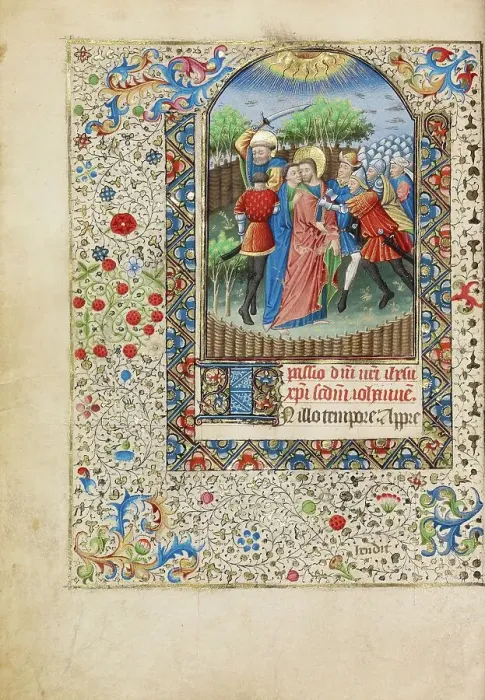 Passio dñi nr̃i ihesu
xp̃i scđm iohannem.
IN illo tempore: Appre
hendit